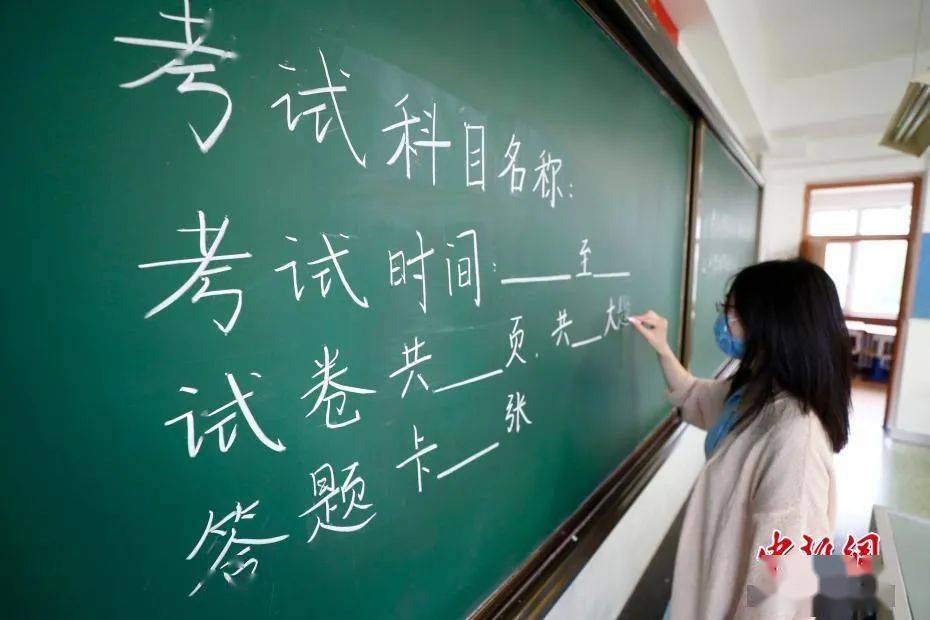 考试科目名称:
考试时间:____至____
试卷共____页,共____大题
答题卡____张
中新网